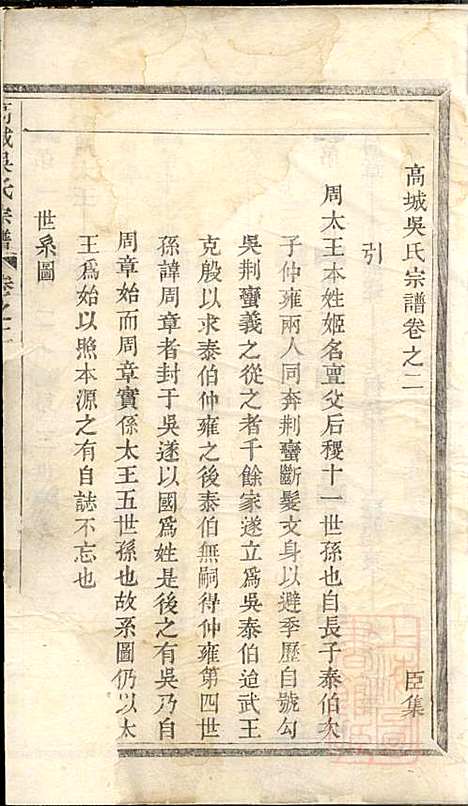 高城吳氏宗譜卷之二
臣集
引
周太王本姓姬名亶父后稷十一世孫也自長子泰伯次
子仲雍兩人同奔荆蠻斷髮文身以避季歷自號勾
吳荆蠻義之從之者千餘家遂立爲吳泰伯迨武王
克殷以求泰伯仲雍之後泰伯無嗣得仲雍第四世
孫諱周章者封于吳遂以國爲姓是後之有吳乃自
周章始而周章實係太王五世孫也故系圖仍以太
王爲始以照本源之有自誌不忘也
世系圖
高城吳氏宗譜
卷之二